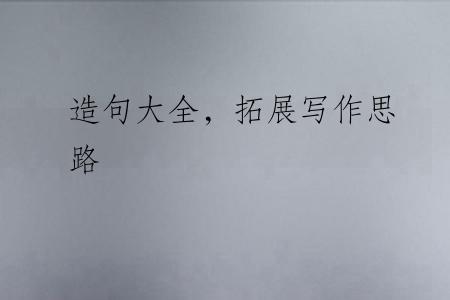 造句大全，拓展写作思
路